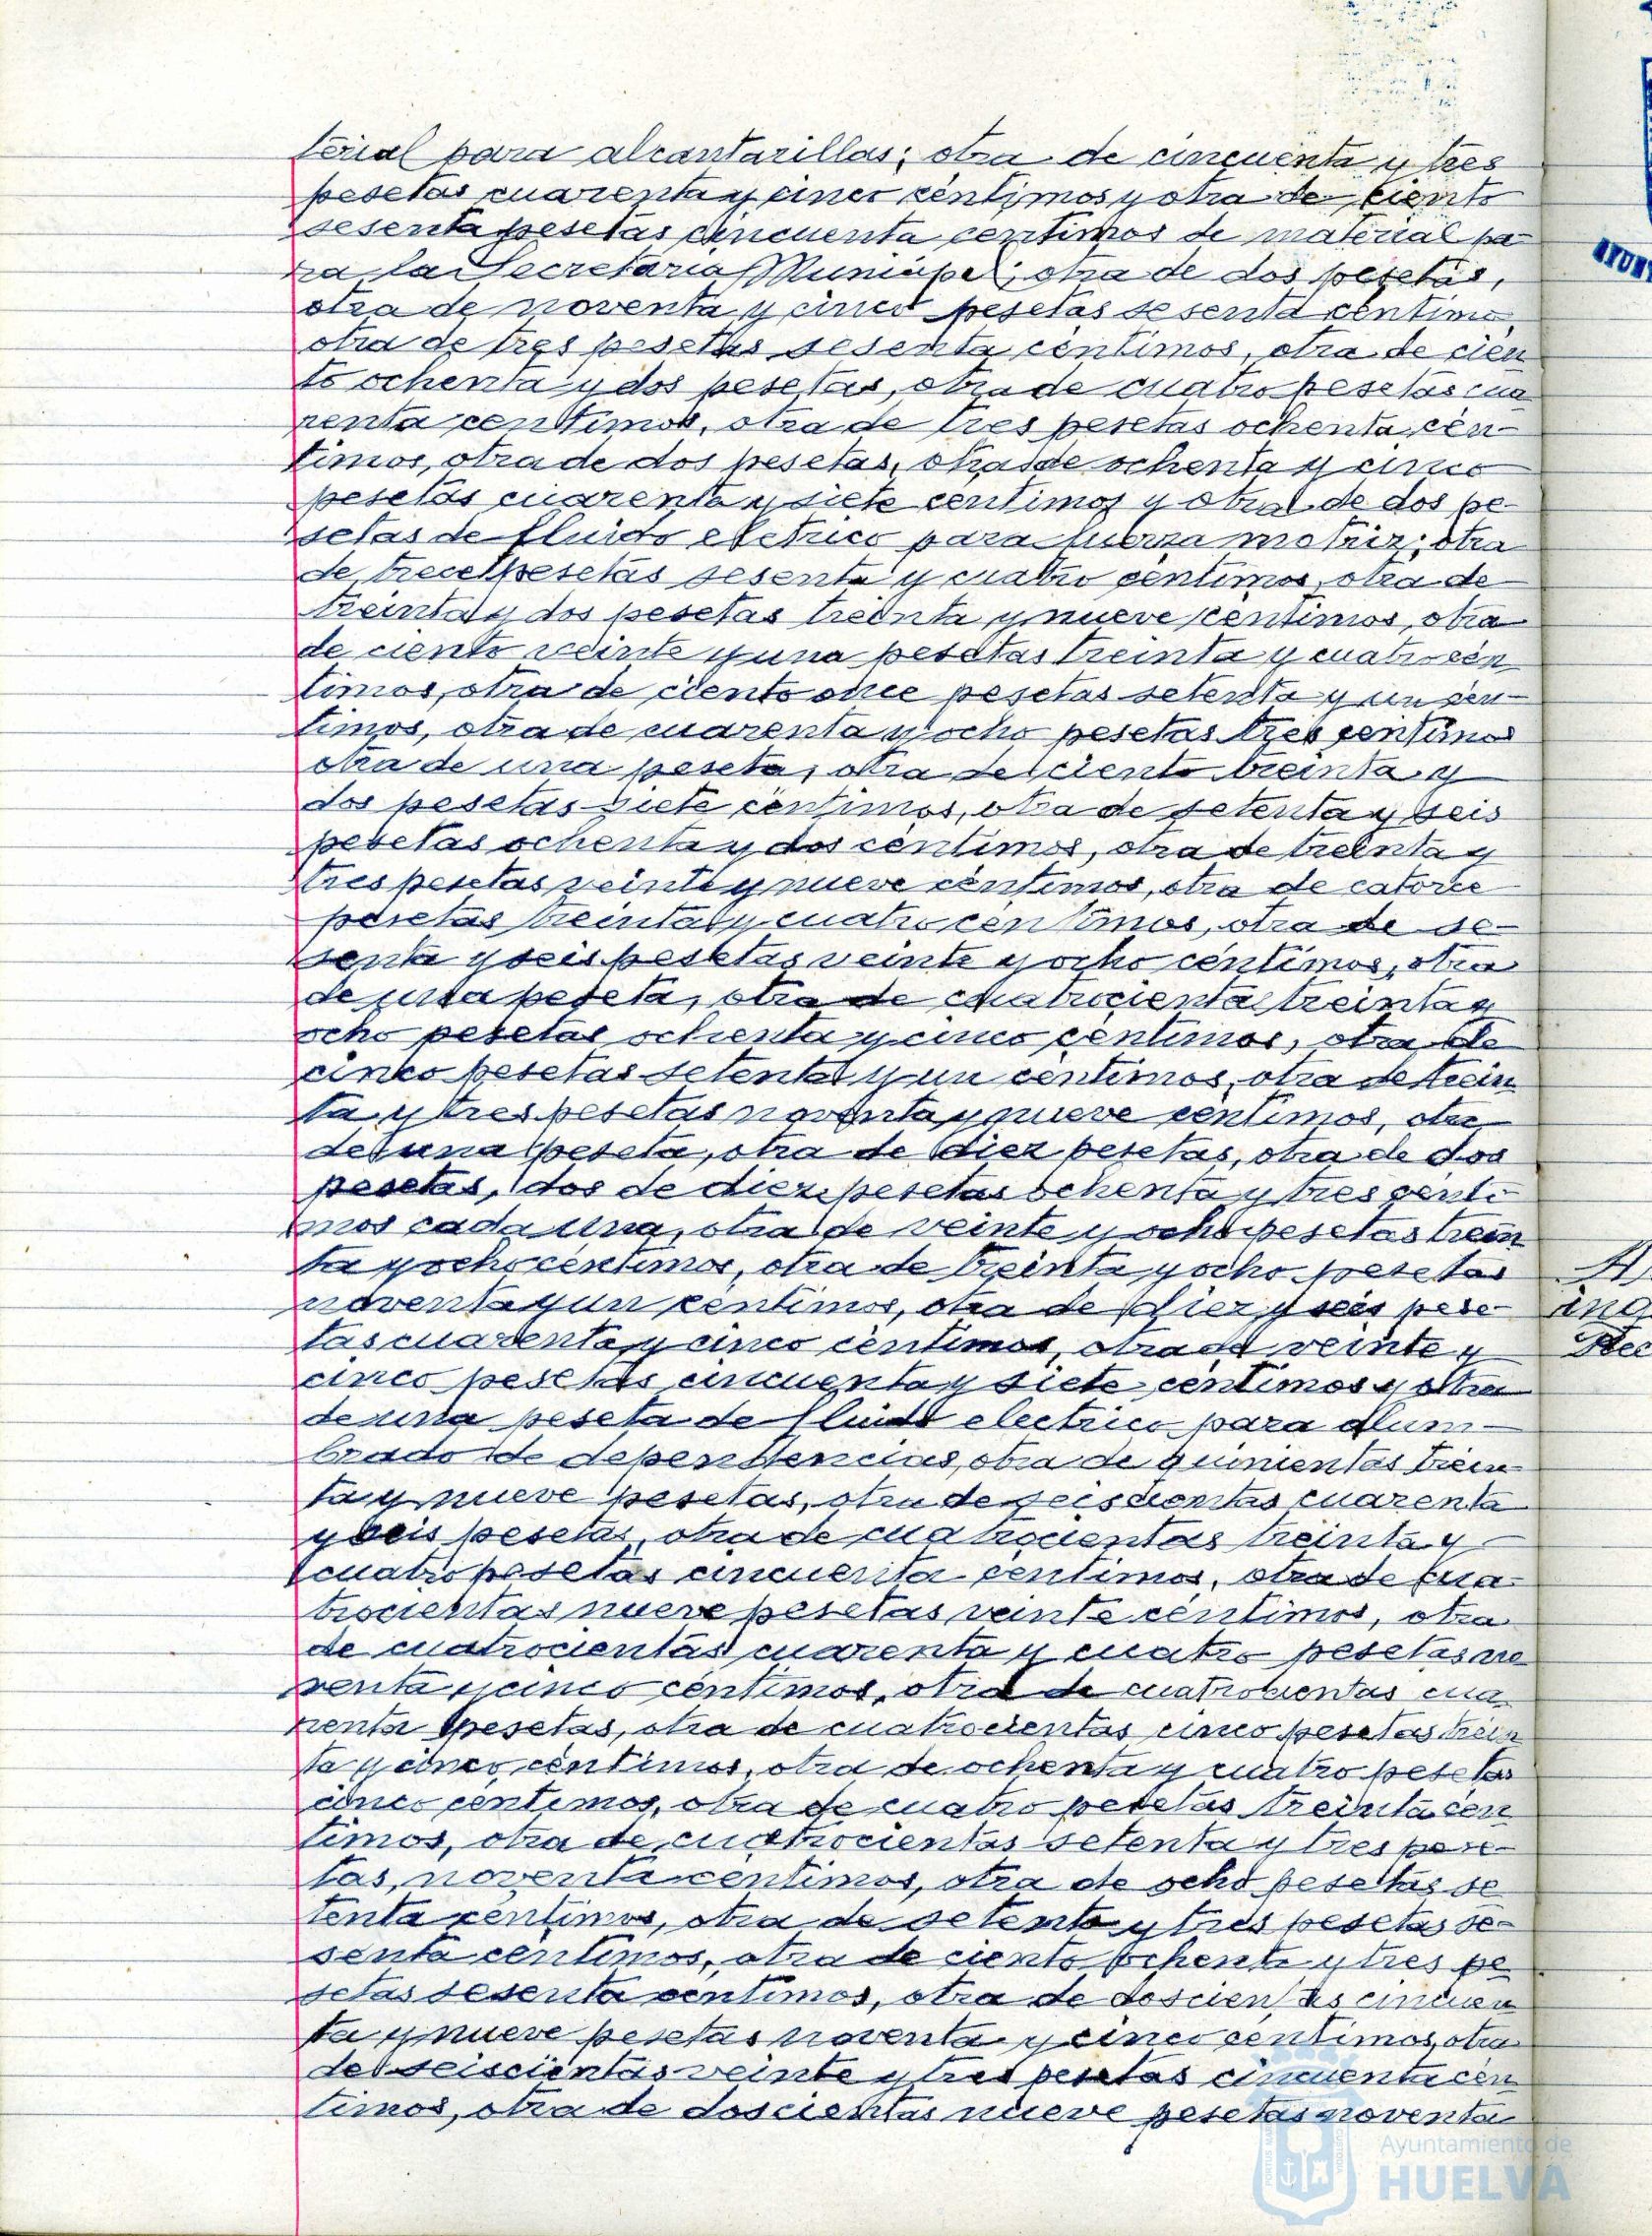 terial para alcantarillas; otra de cincuenta y tres
pesetas cuarenta y cinco céntimos y otra de ciento
sesenta pesetas cincuenta centimos de material pa-
ra la Secretaria Municipal; otra de dos pesetas,
otra de noventa y cinco pesetas sesenta céntimo
otra de tres pesetas sesenta céntimos, otra de cien
to ochenta y dos pesetas, otra de cuatro pesetas cua
renta centimos, otra de tres pesetas ochenta cén-
timos, otra de dos pesetas, otra de ochenta y cinco
pesetas cuarenta y siete centimos y otra de dos pe-
setas de fluido eletrico para fuerza motriz; otra
de trece pesetas sesenta y cuatro céntimos, otra de
treinta y dos pesetas treinta y nueve centimos, otra
de ciento veinte y una pesetas treinta y cuatro cén
timos, otra de ciento once pesetas setenta y un cén-
timos, otra de cuarenta y ocho pesetas tres centimos
otra de una peseta, otra de ciento treinta y
dos pesetas siete céntimos, otra de setenta y seis
pesetas ochenta y dos céntimos, otra de treinta y
tres pesetas veinte y nueve céntimos, otra de catorce
pesetas treinta y cuatro céntimos, otra de se-
senta y seis pesetas veinte y ocho céntimos, otra
de una peseta, otra de cuatrocienta treinta y
ocho pesetas ochenta y cinco centimos, otra de
cinco pesetas setenta y un céntimos, otra de trein
ta y tres pesetas noventa y nueve céntimos, otra
de una peseta, otra de diez pesetas, otra de dos
pesetas, dos de diez pesetas ochenta y tres cénti-
mos cada una, otra de veinte y ocho pesetas trein
ta y ocho céntimos, otra de treinta y ocho pesetas
noventa y un céntimos, otra de diez y seis pese-
tas cuarenta y cinco céntimos, otra de veinte y
cinco pesetas cincuenta y siete céntimos y otra
de una peseta de fluido electrico para alum-
brado de dependencias, otra de quinientas trein
ta y nueve pesetas, otra de seiscientas cuarenta
y seis pesetas, otra de cuatrocientas treinta y
cuatro pesetas cincuenta centimos, otra de cua-
trocientas nueve pesetas veinte céntimos, otra
de cuatrocientas cuarenta y cuatro pesetas no
venta y cinco céntimos, otra de cuatrocientas cua
renta pesetas, otra de cuatrocientas cinco pesetas trein
ta y cinco céntimos, otra de ochenta y cuatro pesetas
cinco céntimos, otra de cuatro pesetas treinta cén
timos, otra de cuatrocientas setenta y tres pese-
tas, noventa centimos, otra de ocho pesetas se
tenta céntimos, otra de setenta y tres pesetas se-
senta céntimos, otra de ciento ochenta y tres pe
setas sesenta céntimos, otra de doscientas cincuen
ta y nueve pesetas noventa y cinco céntimos, otra
de seiscientas veinte y tres pesetas cincuenta cén
timos, otra de doscientas nueve pesetas noventa
Ayuntamiento de
HUELVA